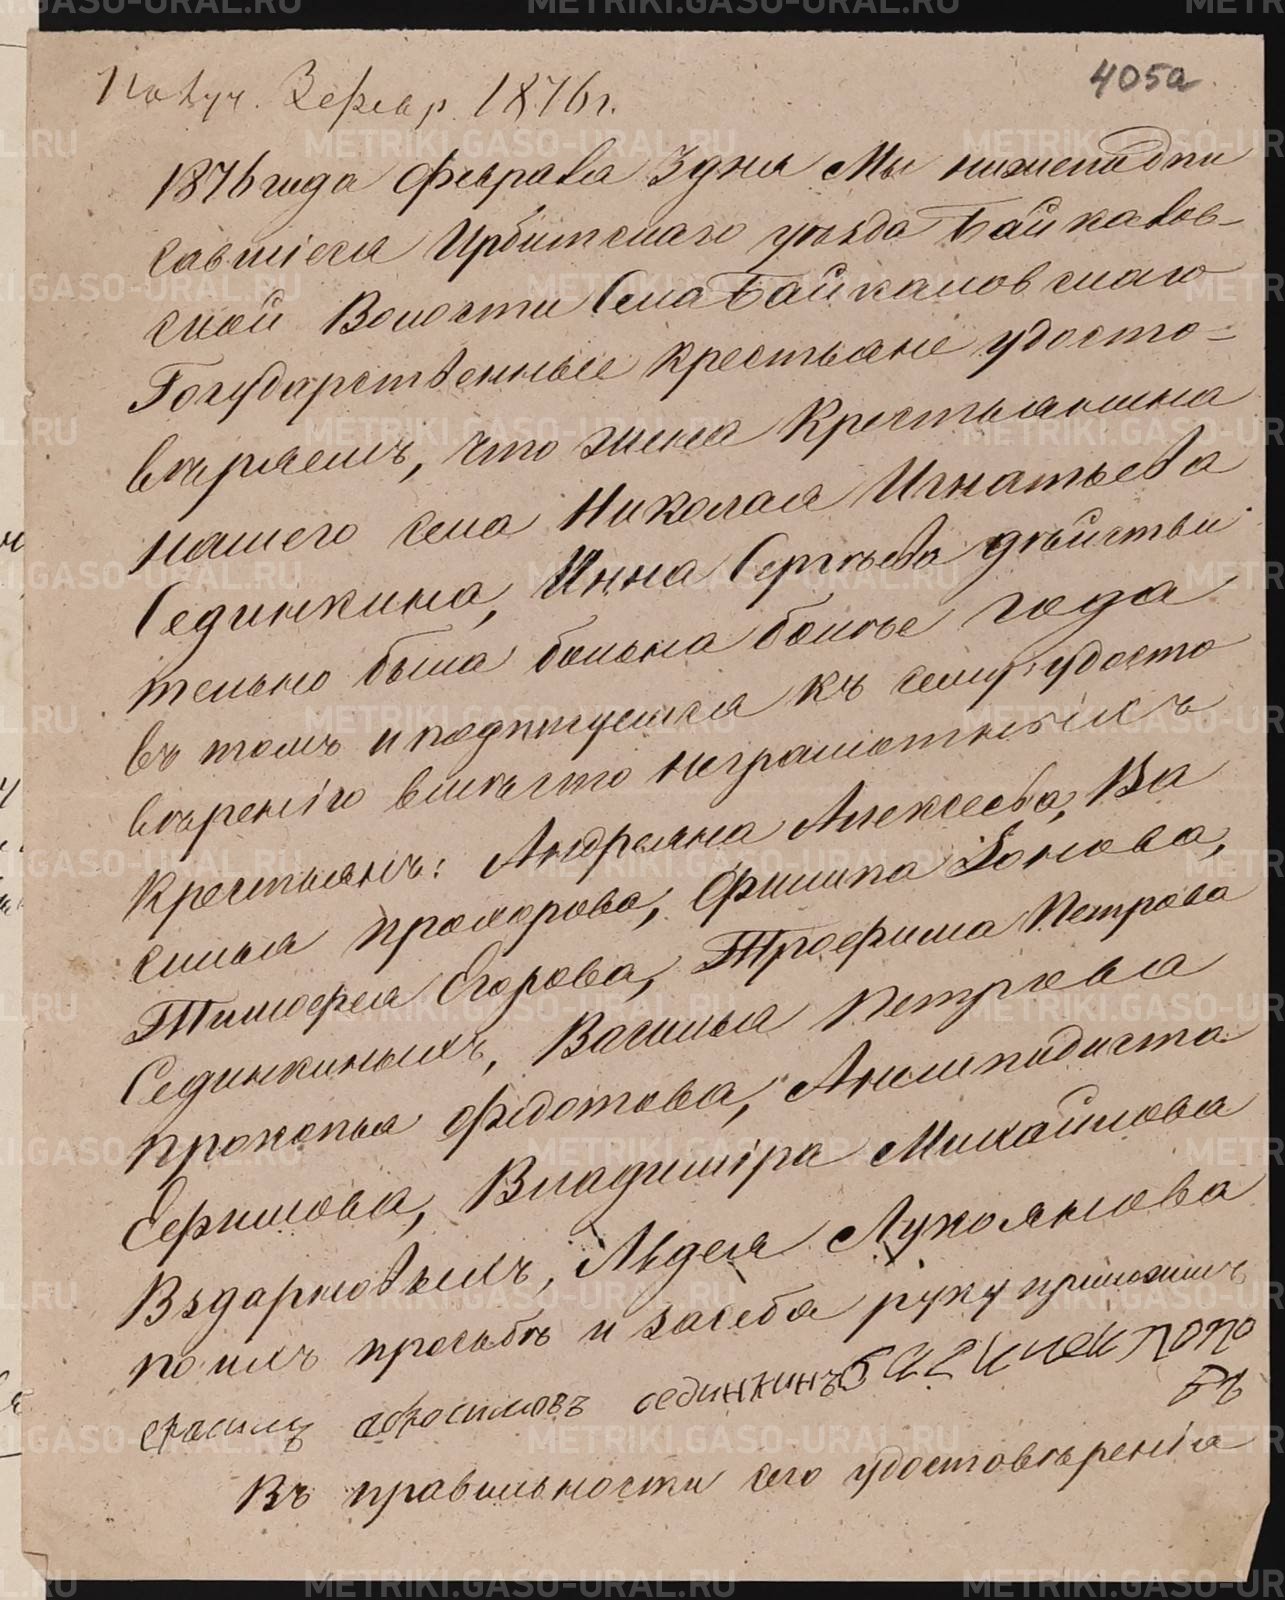 405а
Получ. 3 февр. 1876 г.
1876 года Февраля 3 дня Мы нижеподпи
савшіеся Ирбитскаго уѣзда Байкалов-
ской Волости Села Байкаловскаго
Государственные крестьяне удосто-
вѣряемъ, что жена Крестьянина
нашего села Николая Игнатьева
Сединкина, Анна Сергѣева дѣйстви
тельно была больна болѣе года
въ томъ и подпишемся къ сему удосто
вѣренію вмѣсто неграмотныхъ
Крестьянъ: Андреяна Алексѣева, Ва
силья прохорова, Филипа Зонова,
Тимофея Егорова, Трофима Петрова
Сединкиныхъ, Василья Петрова
прокопья Федотова, Анемподиста
Ефимова, Владиміра Михайлова
Вздорновыхъ, Авдея Лукоянова
по ихъ прозьбѣ и засебя руку приложилъ
афосимовъ сединкинъ
Въ правильности сего удостовѣренія
METRIKI.GASO-URAL.RU